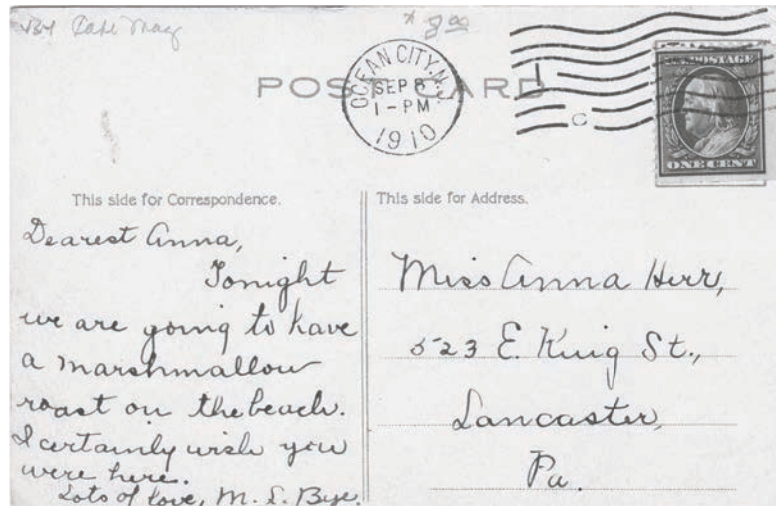 Cape May
* 8.00
OCEAN CITY, N.J.
SEP 8
1-PM
1910
POST CARD
U.S. POSTAGE
ONE CENT
C
This side for Correspondence.
Dearest Anna,
Tonight
we are going to have
a marshmallow
roast on the beach.
I certainly wish you
were here.
Lots of love, M. L. Bye.
This side for Address.
Miss Anna Herr,
523 E. King St.,
Lancaster,
Pa.